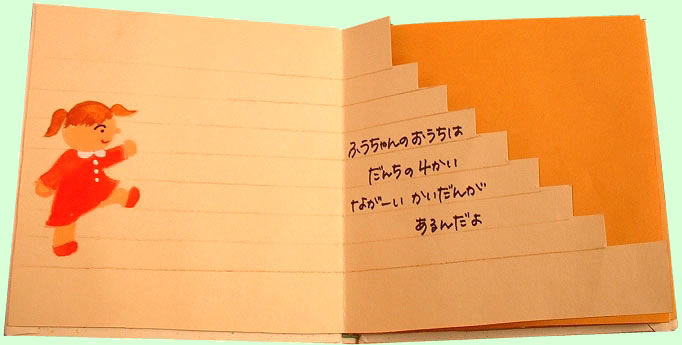 ふうちゃんのおうちは
だんちの4かい
ながーい かいだんが
あるんだよ